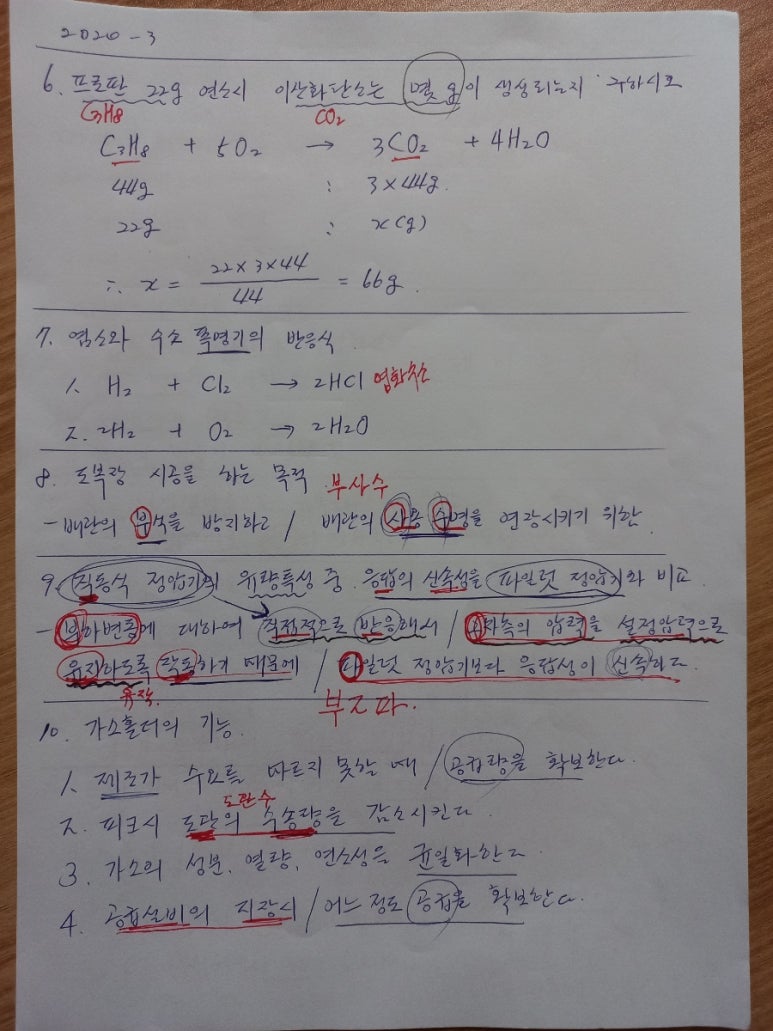 2020-3
6. 프로판 22g 연소시 이산화탄소는 몇 g이 생성되는지 구하시오
C3H8 CO2
C3H8 + 5O2 → 3CO2 + 4H2O
44g : 3×44g.
22g : x(g)
∴ x = 22×3×44 / 44 = 66g.
7. 염소와 수소 폭명기의 반응식
1. H2 + Cl2 → 2HCl 염화수소
2. 2H2 + O2 → 2H2O
8. 도복장 시공을 하는 목적 부사수
- 배관의 부식을 방지하고 / 배관의 사용 수명을 연장시키기 위한
9. 직동식 정압기의 유량특성 중 응답의 신속성을 파일럿 정압기와 비교
- 부하변동에 대하여 직접적으로 반응해서 / 2차측의 압력을 설정압력으로
유지하도록 작동하기 때문에 / 파일럿 정압기보다 응답성이 신속하다.
유작. 부2파.
10. 가스홀더의 기능
1. 제조가 수요를 따르지 못할 때 / 공급량을 확보한다.
도관수
2. 피크시 도관의 수송량을 감소시킨다.
3. 가스의 성분, 열량, 연소성을 균일화한다
4. 공급설비의 지장시 / 어느 정도 공급을 확보한다.